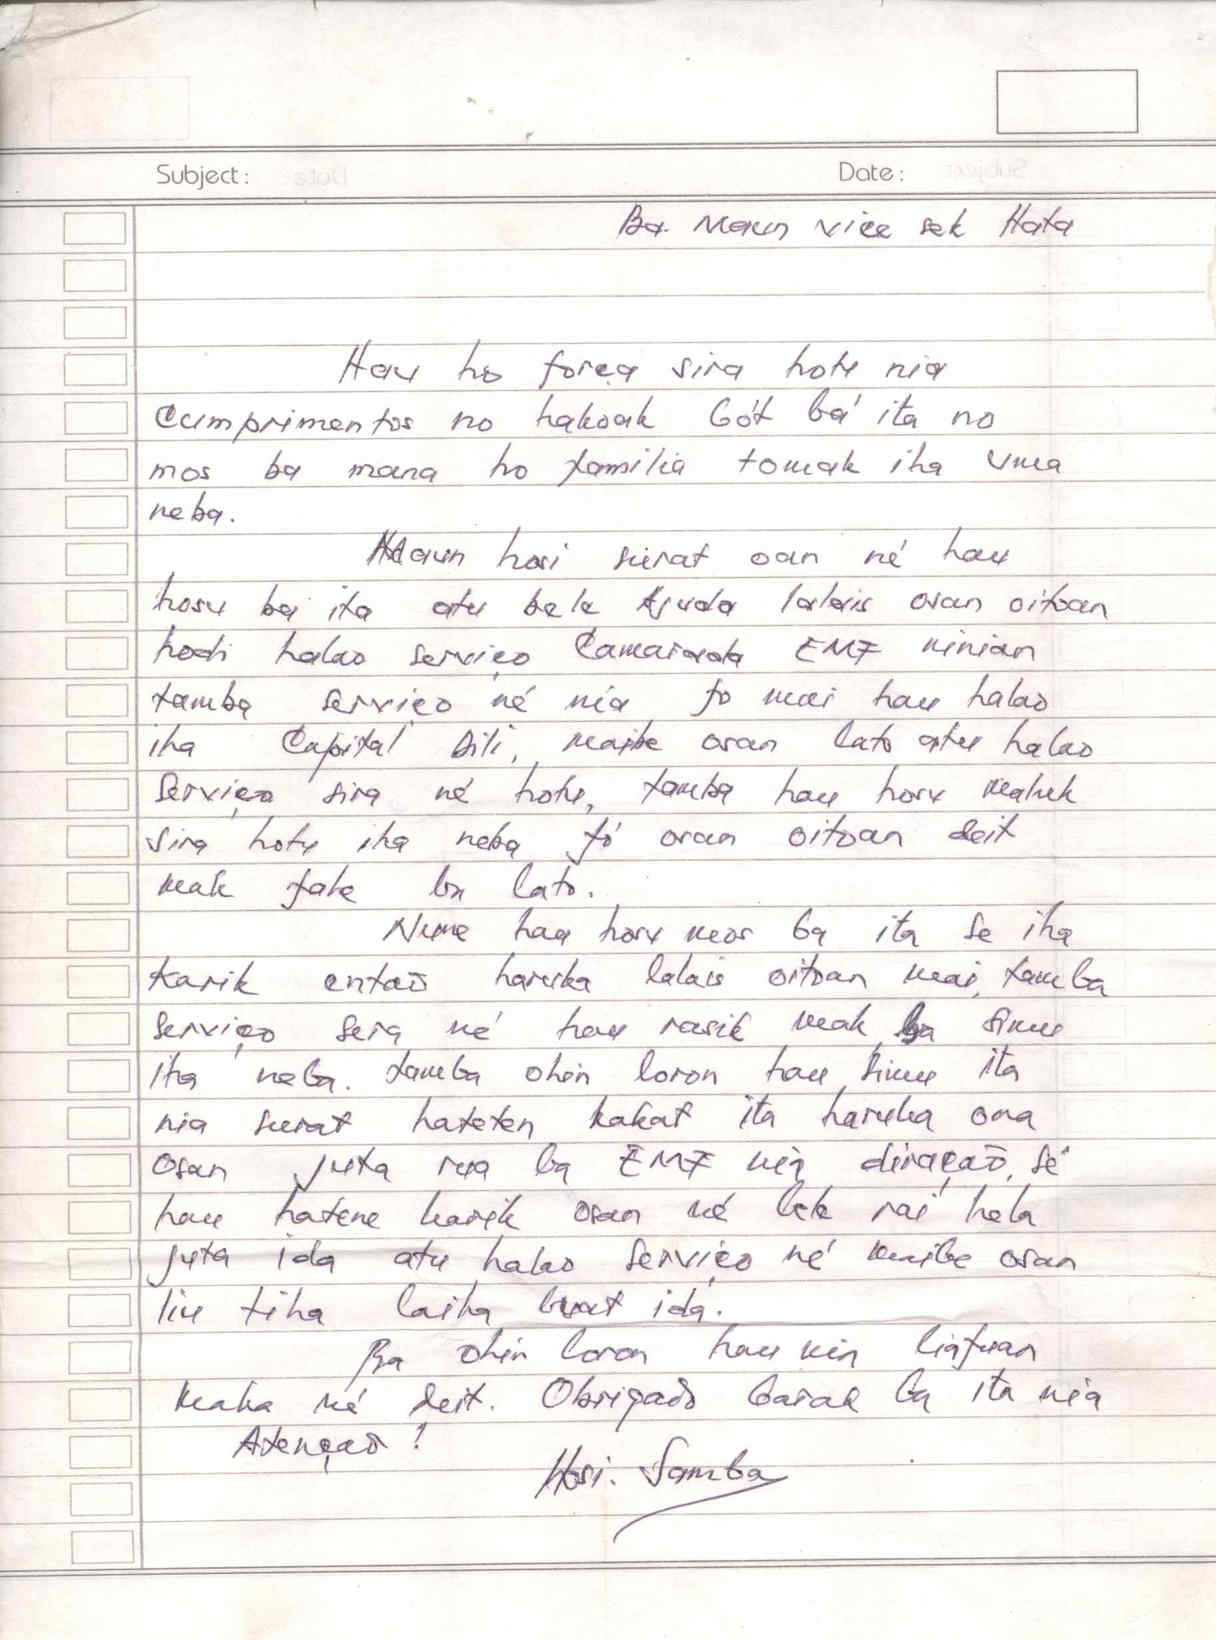 Subject:
Date:
Ba. Maun vice sek Hata
Hau ho força sira hotu nia
Cumprimentos no hakoak bót bá ita no
mos ba mana ho familia tomak iha Uma
neba.
Maun hosi surat oan né hau
hosu ba ita atu bele Ajuda lalais osan oitoan
hodi halao serviço Camarada EMF ninian
tamba serviço né nia fo mai hau halao
iha Capital Dili, maibe osan lato atu halao
Serviço sira né hotu, tamba hau hosu maluk
sira hotu iha neba fó osan oitoan deit
mak fahe la lato.
Nune hau hosu mos ba ita se iha
karik entaõ haruka lalais oitoan mai, tamba
serviço sera né hau rasik mak ba simu
iha neba. tamba ohin loron hau simu ita
nia surat hateten katat ita haruka ona
osan juta rua ba EMF nia diraçaõ, sé
hau hatene karik osan né bele rai hela
juta ida atu halao serviço né maibe osan
liu tiha laiha buat ida.
Ba ohin loron hau nin liafuan
maka né deit. Obrigadõ barak ba ita nia
Atençaõ!
Hosi. Samba